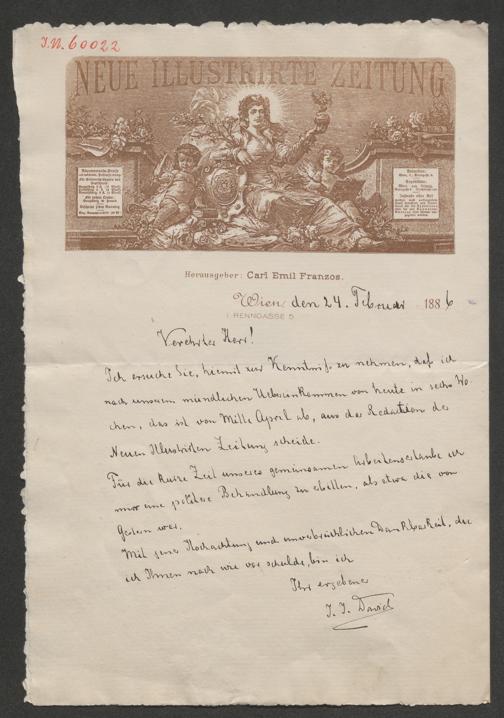 I.N. 60022
NEUE ILLUSTRIRTE ZEITUNG
Herausgeber: Carl Emil Franzos.
Wien, den 24. Februar 1886
I. RENNGASSE 5.
Verehrter Herr!
Ich ersuche Sie, hiemit zur Kenntniß zu nehmen, daß ich
nach unserem mündlichen Uebereinkommen von heute in sechs Wo-
chen, das ist von Mitte April ab, aus der Redaktion der
Neuen Illustrirten Zeitung scheide.
Für die kurze Zeit unseres gemeinsamen Arbeitens erlaube ich
mir eine politere Behandlung zu erbitten, als etwa die von
Gestern war.
Mit jener Hochachtung und unverbrüchlichen Dankbarkeit, die
ich Ihnen nach wie vor schulde, bin ich
Ihr ergebener
J. J. David